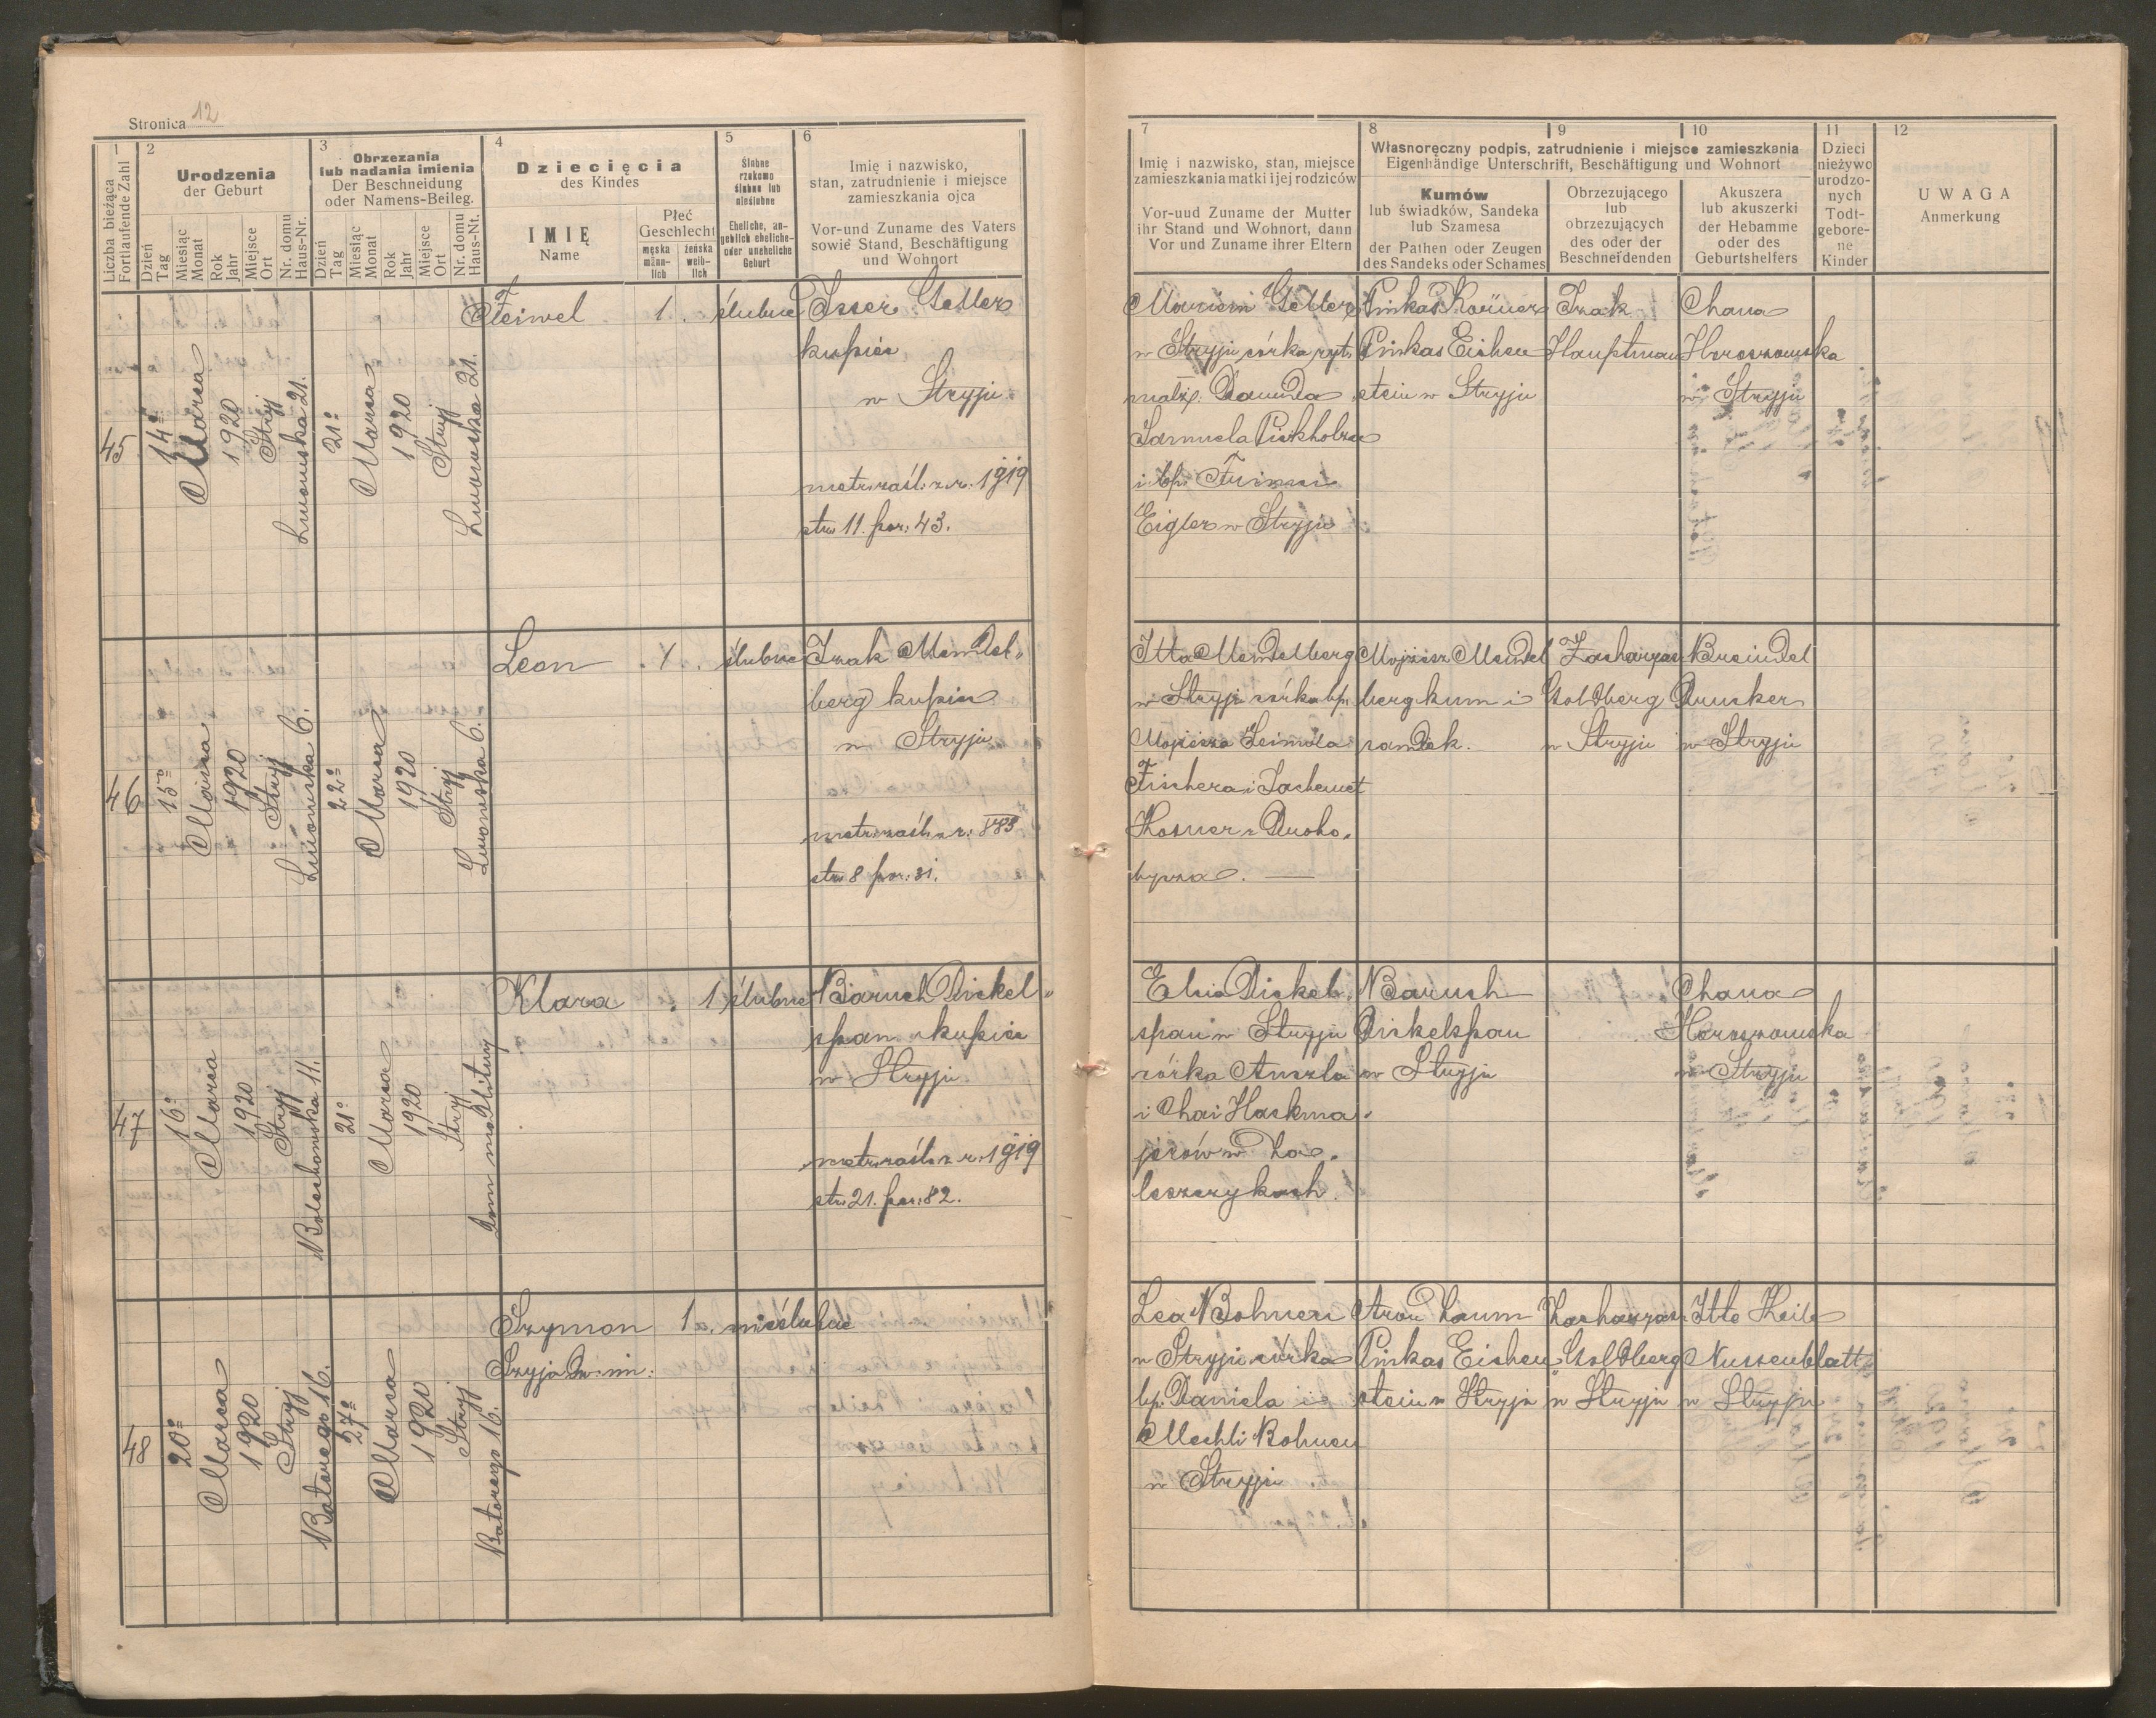 Stronica 12
1
2
3
4
5
6
Liczba bieżąca
Fortlaufende Zahl
Urodzenia
der Geburt
Dzień
Tag
Miesiąc
Monat
Rok
Jahr
Miejsce
Ort
Nr. domu
Haus-Nr.
Obrzezania
lub nadania imienia
Der Beschneidung
oder Namens-Beileg.
Dzień
Tag
Miesiąc
Monat
Rok
Jahr
Miejsce
Ort
Nr. domu
Haus-Nt.
Dziecięcia
des Kindes
IMIĘ
Name
Płeć
Geschlecht
męska
männ-
lich
żeńska
weib-
lich
Ślubne
rzekomo
ślubne lub
nieślubne
Eheliche, an-
geblich eheliche-
oder uneheliche
Geburt
Imię i nazwisko,
stan, zatrudnienie i miejsce
zamieszkania ojca
Vor-und Zuname des Vaters
sowie Stand, Beschäftigung
und Wohnort
45
14º
Marca
1920
Stryj
Lwowska 21.
21º
Marca
1920
Stryj
Lwowska 21.
Feiwel
1.
ślubne
Isser Geller
kupiec
w Stryju
metr. zaśl. z r. 1919
str. 11. poz: 43.
46
15º
Marca
1920
Stryj
Lwowska 6.
22º
Marca
1920
Stryj
Lwowska 6.
Leon
1.
ślubne
Izak Mendel-
berg kupiec
w Stryju
metr. zaśl. z r:
str. 8 poz: 31.
47
16º
Marca
1920
Stryj
Bolechowska 11.
21º
Marca
1920
Stryj
dom modlitwy
Klara
1
ślubne
Baruch Dickel-
span kupiec
w Stryju
metr. zaśl. z r. 1919
str. 21. poz: 82.
48
20º
Marca
1920
Stryj
Batorego 16.
27º
Marca
1920
Stryj
Batorego 16.
Szymon
Szyja Dw. im:
1
nieślubne
7
8
9
10
11
12
Imię i nazwisko, stan, miejsce
zamieszkania matki i jej rodziców
Vor-uud Zuname der Mutter
ihr Stand und Wohnort, dann
Vor und Zuname ihrer Eltern
Własnoręczny podpis, zatrudnienie i miejsce zamieszkania
Eigenhändige Unterschrift, Beschäftigung und Wohnort
Kumów
lub świadków, Sandeka
lub Szamesa
der Pathen oder Zeugen
des Sandeks oder Schames
Obrzezującego
lub
obrzezujących
des oder der
Beschneidenden
Akuszera
lub akuszerki
der Hebamme
oder des
Geburtshelfers
Dzieci
nieżywo
urodzo-
nych
Todt-
gebore-
ne
Kinder
UWAGA
Anmerkung
Geller
w Stryju córka ryt.
małż. Dawida
Samuela Pickholza
i bp. Frimci
Eigler w Stryju
Pinkas
Pinkas Eichen
stein w Stryju
Izak
Hauptman
Chana
Horoszowska
w Stryju
Itta Mendelberg
w Stryju córka bp.
Mojżesza Leimela
Fischera i Jachewet
Kosner z Droho-
bycza.
Mojżesz Mendel
berg kum i
sandek.
Zacharyas
Goldberg
w Stryju
Breindel
Drucker
w Stryju
Elsia Dickel-
span w Stryju
córka Anszla
i Chai Hackma-
jerów w Za-
leszczykach.
Baruch
Dickelspan
w Stryju
Chana
Horoszowska
w Stryju
Lea Bohnen
w Stryju córka
bp. Daniela i
Mechli Bohnen
w Stryju
Aron Laum
Pinkas Eichen
stein w Stryju
Zacharyas
Goldberg
w Stryju
Itte Keile
Nussenblatt
w Stryju